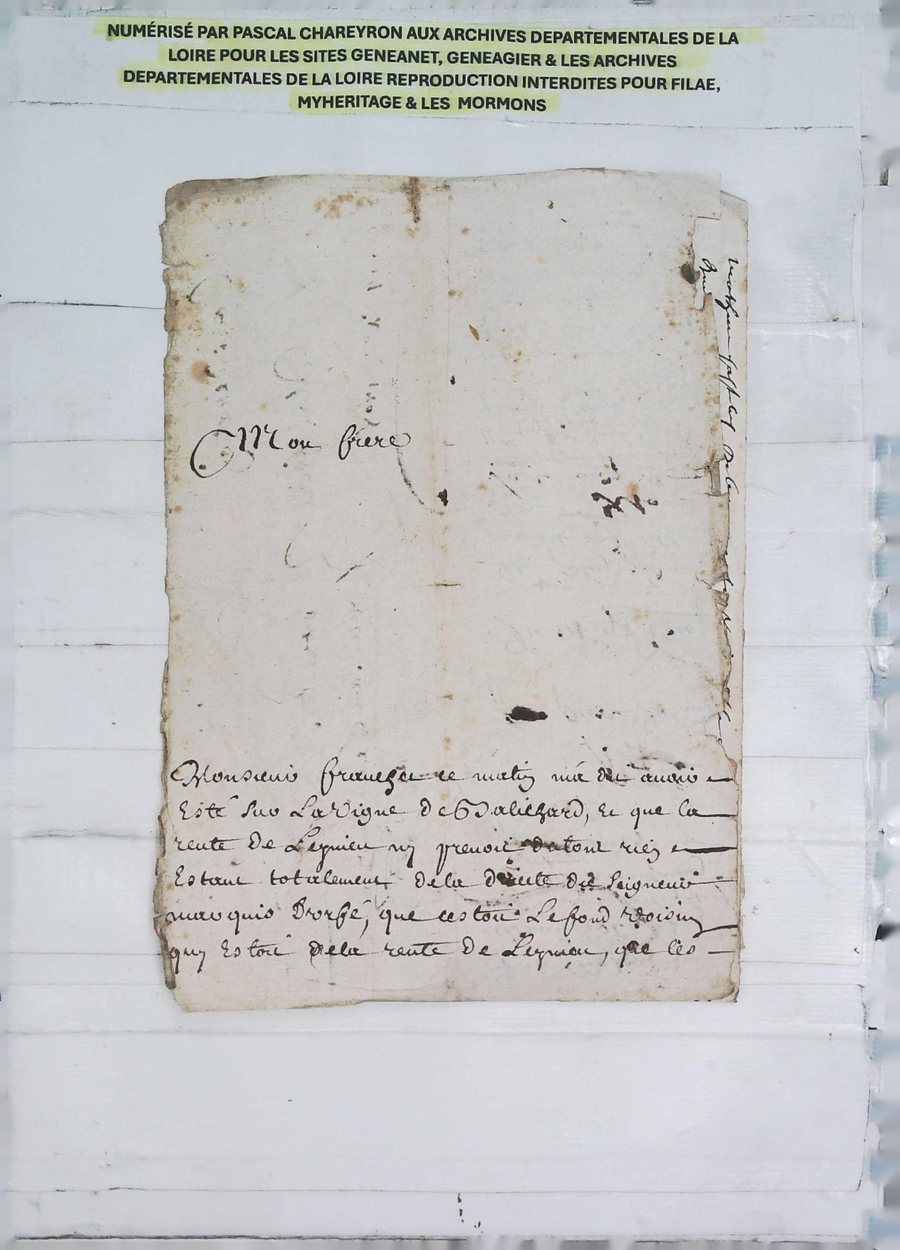 NUMÉRISÉ PAR PASCAL CHAREYRON AUX ARCHIVES DEPARTEMENTALES DE LA
LOIRE POUR LES SITES GENEANET, GENEAGIER & LES ARCHIVES
DEPARTEMENTALES DE LA LOIRE REPRODUCTION INTERDITES POUR FILAE,
MYHERITAGE & LES MORMONS
Mon frere
Monsieur ce matin m'a dit auoir
Esté sur La Vigne de, Et que la
rente de Leynieu ny prenoit du tout rien
Estant totalement de la directe du seigneur
marquis Dorfé, que cestoit Le fond voisin
quy Estoit de la rente de Leynieu, que les